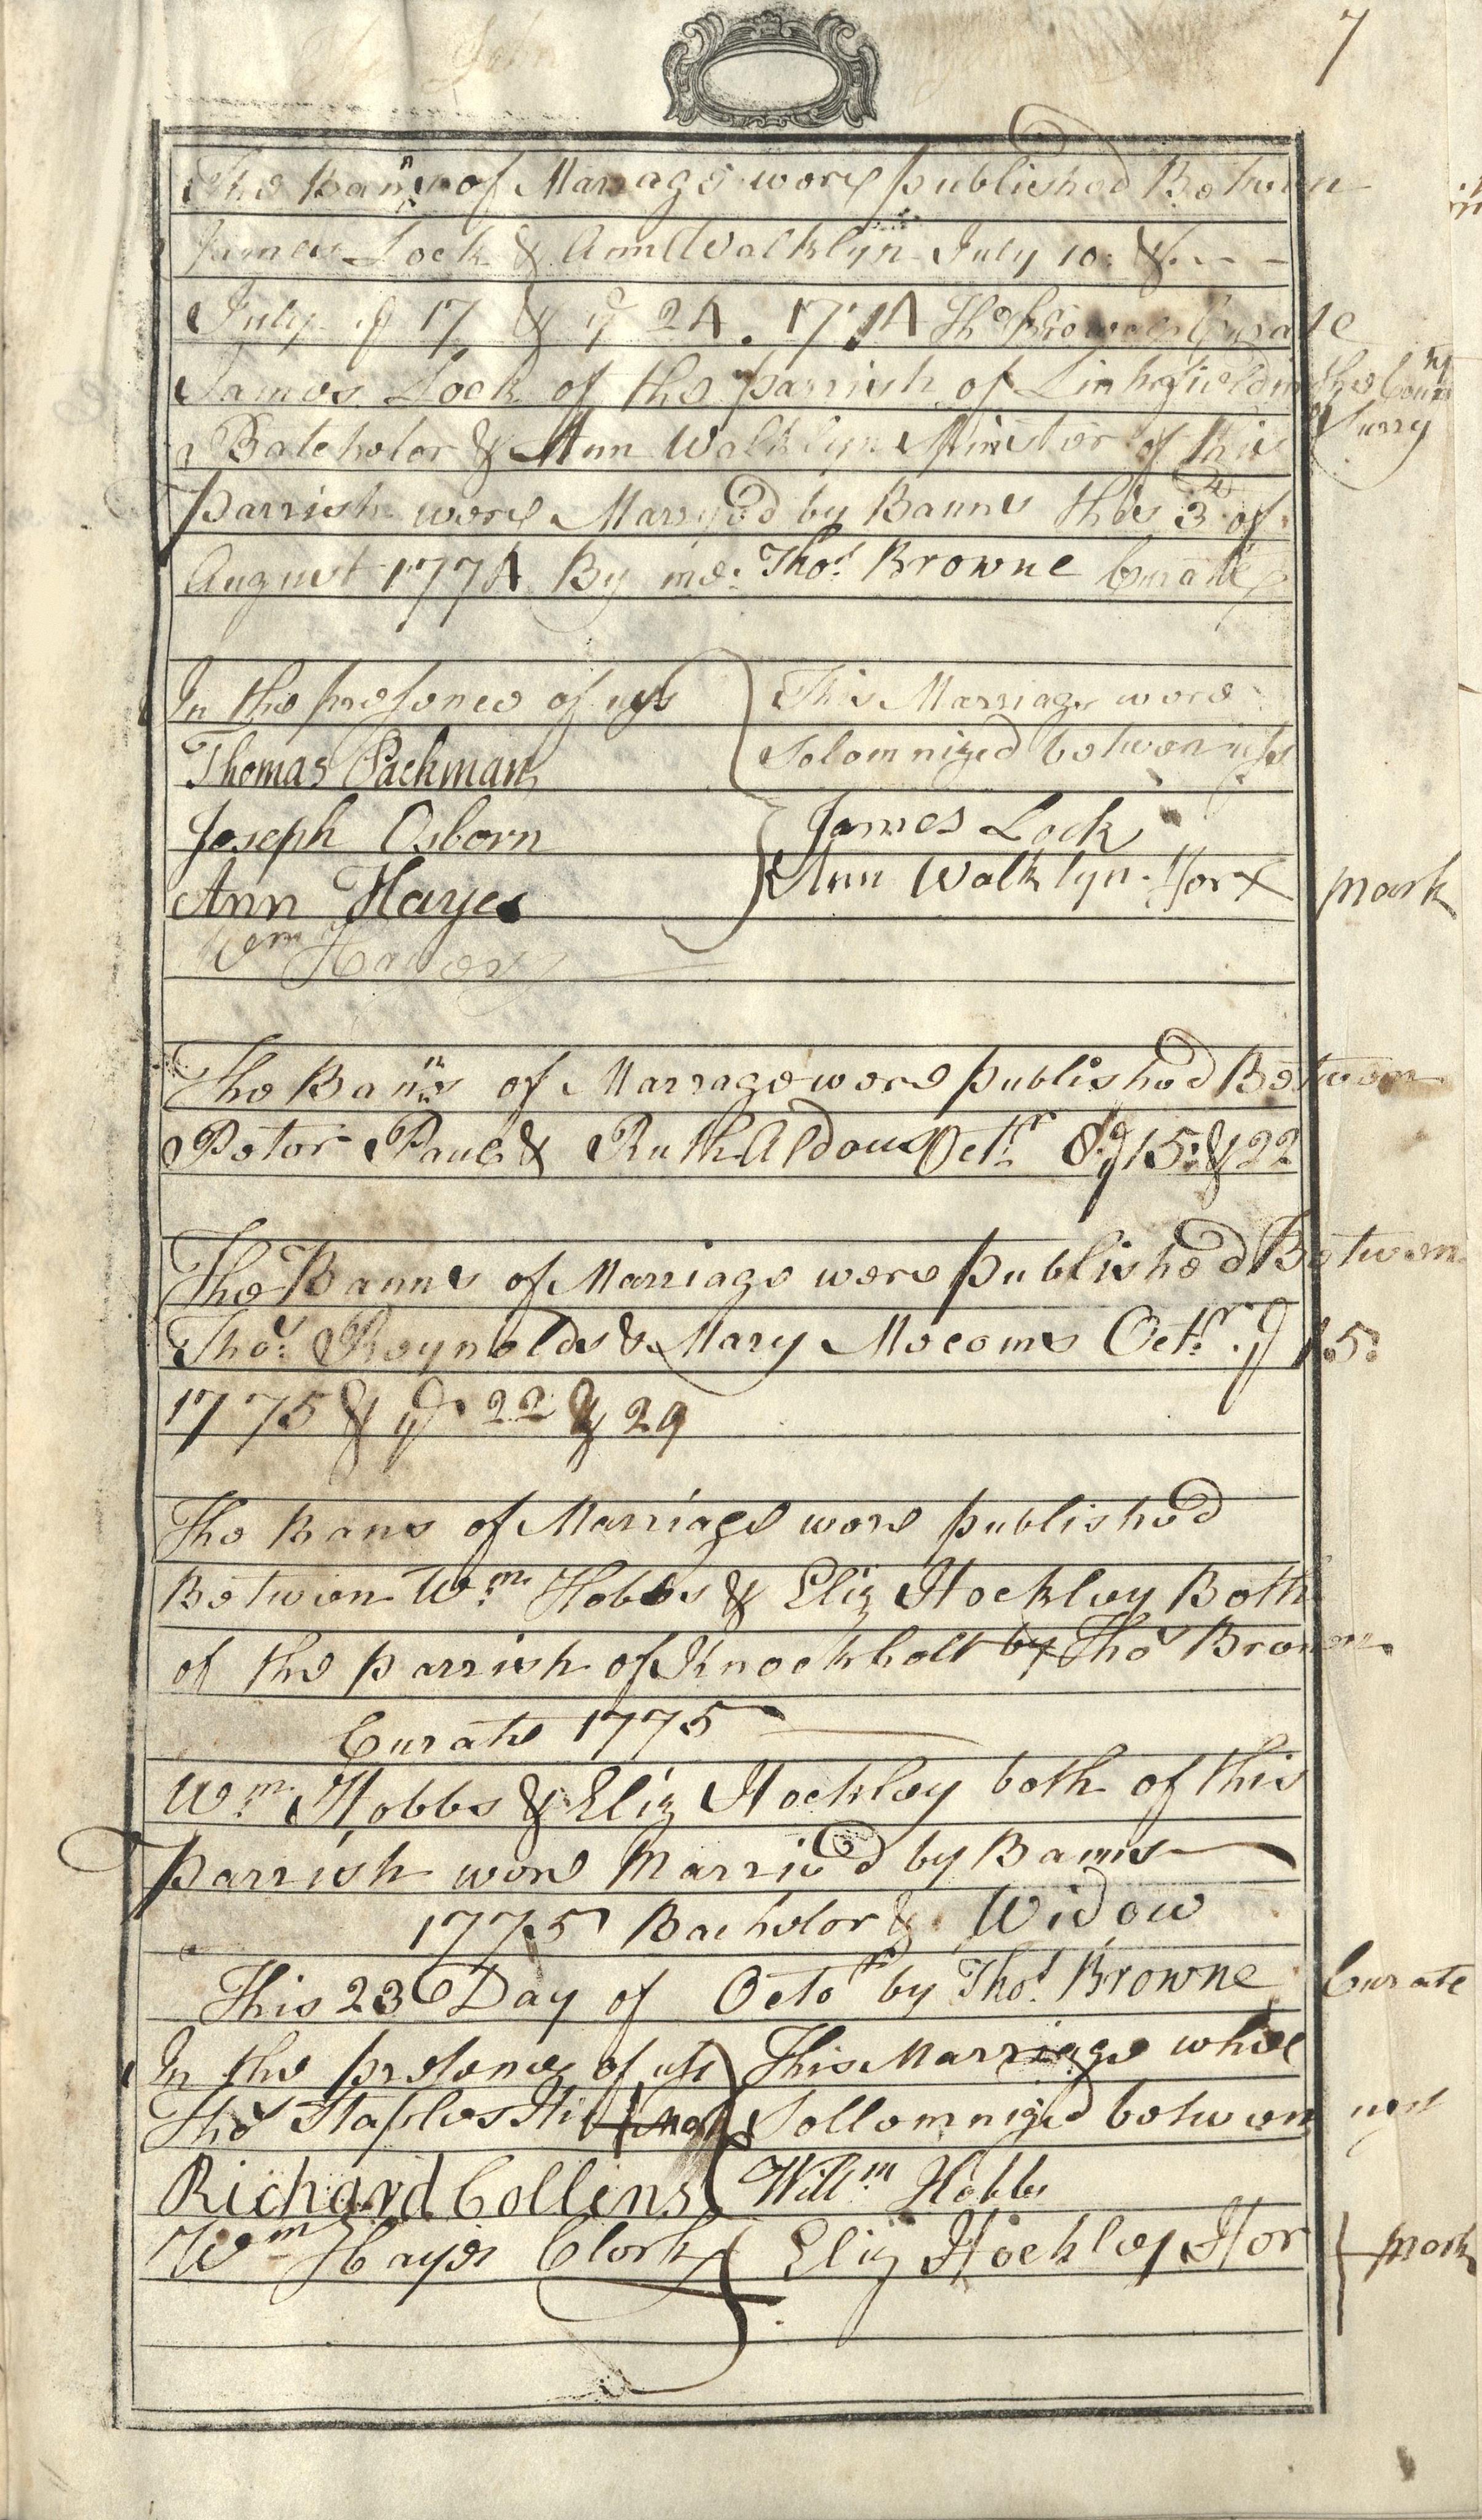 7
The Banns of Marrage were published Between
James Lock & Ann Walklyn July 10: & - -
July ye 17 & ye 24. 1774 Tho Browne Curate
James Lock of the parrish of Linhgfield in the County of Surry
Batchelor & Ann Walklyn Minster of this
parrish were Marryed by Banns this 3d of
August 1774 By me: Thos. Browne Curate
In the presence of uss
This Marriage were
Thomas Packman
Solomnized between uss
Joseph Osborn
James Lock
Ann Hayes
Ann Walklyn Her X mark
Wm Hayes
The Banns of Marrage were published Between
Peter Paul & Ruth Aldous Octr. 8 ye 15: & 22
The Banns of Marriage were published Between
Thos. Reynolds & Mary Mecoms Octr. ye 15:
1775 & ye 22 & 29
The Bans of Marriage were published
Between Wm. Hobbs & Eliz Hockley Both
of the parrish of Knockholt by Thos Browne
Curate 1775
Wm. Hobbs & Eliz Hockley both of this
parrish were Married by Banns
1775 Bachelor & Widow
This 23 Day of Octor by Thos. Browne Curate
In the presence of uss
This Marriage whee
Thos Staples
Sollomnized between uss
Richard Collens
Willm Hobbs
Wm Hayes Clerk
Eliz Hockley Her mark